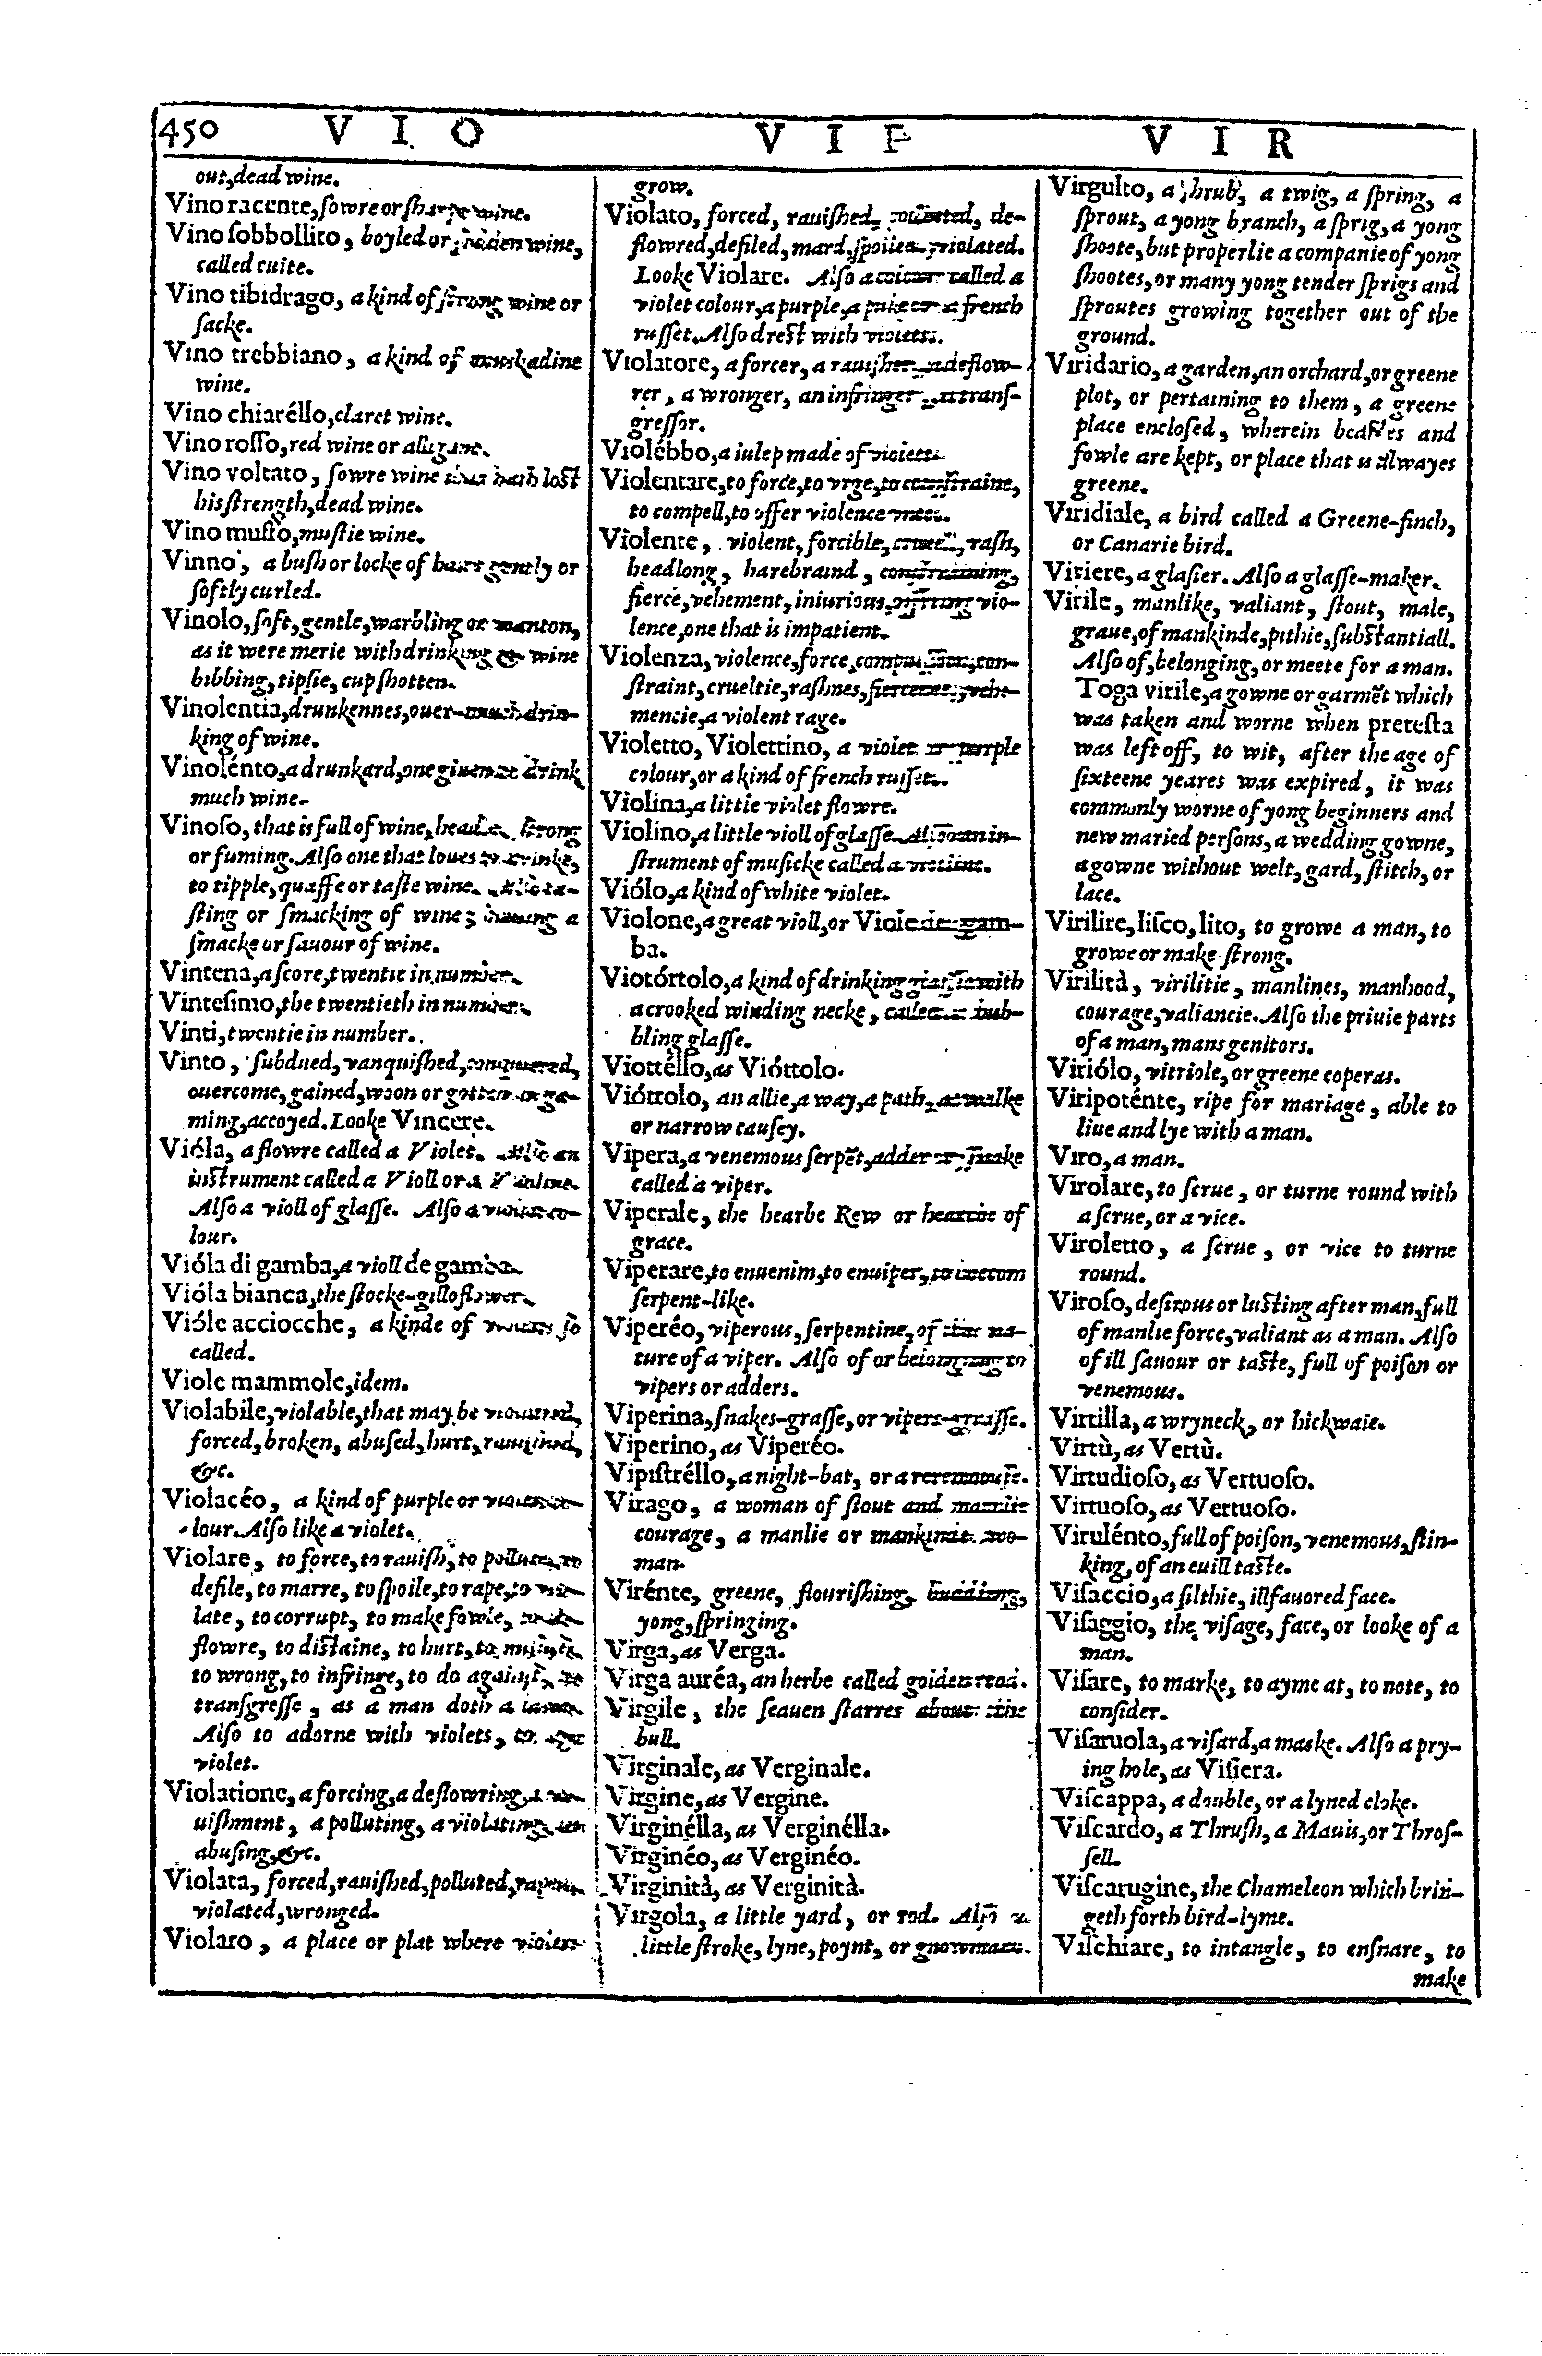 450 V I O V I P V I R
out, dead wine.
Vino racente, ſowre or ſharpe wine.
Vino ſobbollito, boyled or ſodden wine,
called cuite.
Vino tibidrago, a kind of ſtrong wine or
ſacke.
Vino trebbiano, a kind of muskadine
wine.
Vino chiaréllo, claret wine.
Vino roſſo, red wine or alligant.
Vino voltato, ſowre wine that hath loſt
his ſtrength, dead wine.
Vino muſto, muſtie wine.
Vinno, a buſh or locke of haire gently or
ſoftly curled.
Vinolo, ſoft, gentle, warbling or wanton,
as it were merie with drinking or wine
bibbing, tipſie, cupſhotten.
Vinolentia, drunkennes, ouer-much drin-
king of wine.
Vinolénto, a drunkard, one giuen to drink
much wine.
Vinoſo, that is full of wine, headie, ſtrong
or fuming. Alſo one that loues to drinke,
to tipple, quaffe or taſte wine. Alſo ta-
ſting or ſmacking of wine; hauing a
ſmacke or ſauour of wine.
Vintena, a ſcore, twentie in number.
Vinteſimo, the twentieth in number.
Vinti, twentie in number.
Vinto, ſubdued, vanquiſhed, conquered,
ouercome, gained, woon or gotten in ga-
ming, accoyed. Looke Vincere.
Vióla, a flowre called a Violet. Alſo an
inſtrument called a Violl or a Violine.
Alſo a violl of glaſſe. Alſo a violet co-
lour.
Vióla di gamba, a violl de gamba.
Vióla bianca, the ſtocke-gilloflower.
Vióle acciocche, a kinde of violets ſo
called.
Viole mammole, idem.
Violabile, violable, that may be violated,
forced, broken, abuſed, hurt, rauiſhed,
&c.
Violacéo, a kind of purple or violet co-
lour. Alſo like a violet.
Violare, to force, to rauiſh, to pollute, to
defile, to marre, to ſpoile, to rape, to vio-
late, to corrupt, to make fowle, to de-
flowre, to diſtaine, to hurt,
to wrong, to infringe, to do againſt, to
transgreſſe, as a man doth a lawe.
Alſo to adorne with violets, to
violet.
Violatione, a forcing, a deflowring, a ra-
uiſhment, a polluting, a violating, an
abuſing, &c.
Violata, forced, rauiſhed, polluted, raped,
violated, wronged.
Violaro, a place or plat where violets
grow.
Violato, forced, rauiſhed, polluted, de-
flowred, defiled, mard, ſpoiled, violated.
Looke Violare. Alſo a colour called a
violet colour, a purple, a puke or a french
ruſſet. Alſo dreſt with violets.
Violatore, a forcer, a rauiſher, a deflow-
rer, a wronger, an infringer, a tranſ-
greſſor.
Violébbo, a iulep made of violets.
Violentare, to force, to vrge, to conſtraine,
to compell, to offer violence vnto.
Violente, violent, forcible, cruell, raſh,
headlong, harebraind, conſtraining,
fierce, vehement, iniurious, offring vio-
lence, one that is impatient.
Violenza, violence, force, compulſion, con-
ſtraint, crueltie, raſhnes, fiercenes, vehe-
mencie, a violent rage.
Violetto, Violettino, a violet or purple
colour, or a kind of french ruſſet.
Violina, a little violet flowre.
Violino, a little violl of glaſſe. Alſo an in-
ſtrument of muſicke called a violine.
Viólo, a kind of white violet.
Violone, a great violl, or Viole de gam-
ba.
Viotórtolo, a kind of drinking glaſſe with
a crooked winding necke, called a bub-
bling glaſſe.
Viottéllo, as Vióttolo.
Vióttolo, an allie, a way, a path, a walke
or narrow cauſey.
Vipera, a venemous ſerpẽt, adder or ſnake
called a viper.
Viperale, the hearbe Rew or hearbe of
grace.
Viperare, to enuenim, to enuiper, to become
ſerpent-like.
Viperéo, viperous, ſerpentine, of the na-
ture of a viper. Alſo of or belonging to
vipers or adders.
Viperina, ſnakes-graſſe, or vipers-graſſe.
Viperino, as Viperéo.
Vipiſtréllo, a night-bat, or a reremouſe.
Virago, a woman of ſtout and manlie
courage, a manlie or mankinde wo-
man.
Virénte, greene, flouriſhing, budding,
yong, ſpringing.
Virga, as Verga.
Virga auréa, an herbe called golden read.
Virgile, the ſeauen ſtarres about the
bull.
Virginale, as Verginale.
Virgine, as Vergine.
Virginélla, as Verginélla.
Virginéo, as Verginéo.
Virginità, as Verginità.
Virgola, a little yard, or rod. Alſo a
little ſtroke, lyne, poynt, or
Virgulto, a ſhrub, a twig, a ſpring, a
ſprout, a yong branch, a ſprig, a yong
ſhoote, but properlie a companie of yong
ſhootes, or many yong tender ſprigs and
ſproutes growing together out of the
ground.
Viridario, a garden, an orchard, or greene
plot, or pertaining to them, a greene
place encloſed, wherein beaſtes and
fowle are kept, or place that is alwayes
greene.
Viridiale, a bird called a Greene-finch,
or Canarie bird.
Viriere, a glaſier. Alſo a glaſſe-maker.
Virile, manlike, valiant, ſtout, male,
graue, of mankinde, pithie, ſubſtantiall.
Alſo of, belonging, or meete for a man.
Toga virile, a gowne or garmẽt which
was taken and worne when preteſta
was left off, to wit, after the age of
ſixteene yeares was expired, it was
commonly worne of yong beginners and
new maried perſons, a wedding gowne,
a gowne without welt, gard, ſtitch, or
lace.
Virilire, liſco, lito, to growe a man, to
growe or make ſtrong.
Virilità, virilitie, manlines, manhood,
courage, valiancie. Alſo the priuie parts
of a man, mans genitors.
Viriólo, vitriole, or greene coperas.
Viripoténte, ripe for mariage, able to
liue and lye with a man.
Viro, a man.
Virolare, to ſcrue, or turne round with
a ſcrue, or a vice.
Viroletto, a ſcrue, or vice to turne
round.
Viroſo, deſirous or luſting after man, full
of manlie force, valiant as a man. Alſo
of ill ſauour or taſte, full of poiſon or
venemous.
Virtilla, a wryneck, or hickwaie.
Virtù, as Vertù.
Virtudioſo, as Vertuoſo.
Virtuoſo, as Vertuoſo.
Virulénto, full of poiſon, venemous, ſtin-
king, of an euill taſte.
Viſaccio, a filthie, illfauored face.
Viſaggio, the viſage, face, or looke of a
man.
Viſare, to marke, to ayme at, to note, to
conſider.
Viſaruola, a viſard, a maske. Alſo a pry-
ing hole, as Viſiera.
Viſcappa, a double, or a lyned cloke.
Viſcardo, a Thruſh, a Mauis, or Throſ-
ſell.
Viſcarugine, the Chameleon which brin-
geth forth bird-lyme.
Viſchiare, to intangle, to enſnare, to
make